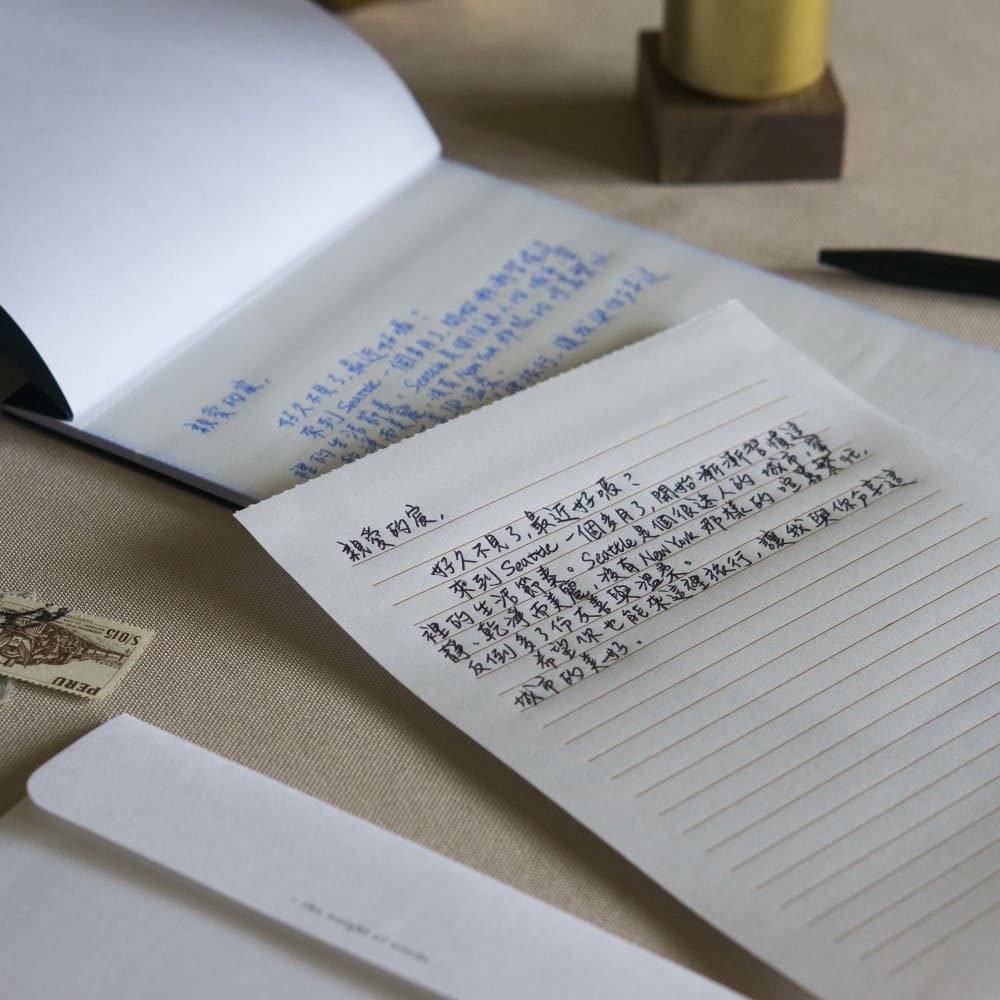 親愛的宸,
好久不見了,最近好嗎?
來到 Seattle 一個多月了,開始漸漸習慣這
裡的生活節奏。Seattle是個很迷人的城市,寧
靜、乾淨而美麗,沒有New York 那樣的喧囂繁忙,
反倒多了份友善與溫柔。
希望你也能來這裡旅行,讓我與你分享這
城市的美好。
親愛的宸,
好久不見了,最近好嗎?
來到 Seattle 一個多月了,開始漸漸習慣這
裡的生活節奏。Seattle是個很迷人的城市,寧
而美麗,沒有New York 那樣的喧囂繁忙,
旅行,讓我與你分享這
S/015
PERU
- the weight of words -